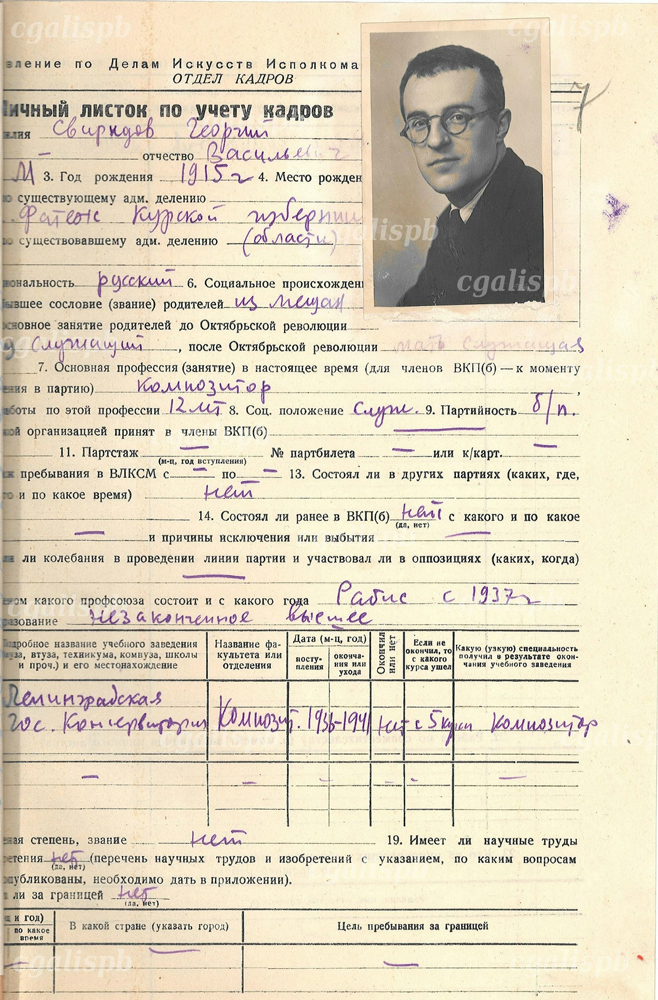 cgalispb cgalispb
вление по Делам Искусств Исполкома
ОТДЕЛ КАДРОВ
7
Личный листок по учету кадров
илия Свиридов Георгий
— отчество Васильевич
М 3. Год рождения 1915 г 4. Место рожден
существующему адм. делению
Фатеж Курской губернии
о существовавшему адм. делению (области)
cgalispb
cgalispb
иональность русский 6. Социальное происхожден
бывшее сословие (звание) родителей из мещан
основное занятие родителей до Октябрьской революции
служащий, после Октябрьской революции мать служащая
7. Основная профессия (занятие) в настоящее время (для членов ВКП(б) — к моменту
ения в партию) Композитор ,
аботы по этой профессии 12 лет 8. Соц. положение служ. 9. Партийность б/п.
кой организацией принят в члены ВКП(б) —
11. Партстаж — № партбилета — или к/карт. —
(м-ц, год вступления)
ж пребывания в ВЛКСМ с — по — 13. Состоял ли в других партиях (каких, где,
го и по какое время) нет
14. Состоял ли ранее в ВКП(б) нет с какого и по какое
(да, нет)
— и причины исключения или выбытия —
ли ли колебания в проведении линии партии и участвовал ли в оппозициях (каких, когда)
—
ном какого профсоюза состоит и с какого года Рабис с 1937 г
разование незаконченное высшее
Подробное название учебного заведения (вуза, втуза, техникума, комвуза, школы и проч.) и его местонахождение
Название факультета или отделения
Дата (м-ц, год)
поступления
окончания или ухода
Окончил или нет
Если не окончил, то с какого курса ушел
Какую (узкую) специальность получил в результате окончания учебного заведения
Ленинградская
Гос. Консерватория Композит. 1936-1941 Нет с 5 курса композитор
— — — — — —
ная степень, звание нет 19. Имеет ли научные труды
ретения нет (перечень научных трудов и изобретений с указанием, по каким вопросам
(да, нет)
опубликованы, необходимо дать в приложении).
ли за границей нет
(да, нет)
ц и год)
по какое время
В какой стране (указать город)
Цель пребывания за границей
— — —
cgalispb cgalispb